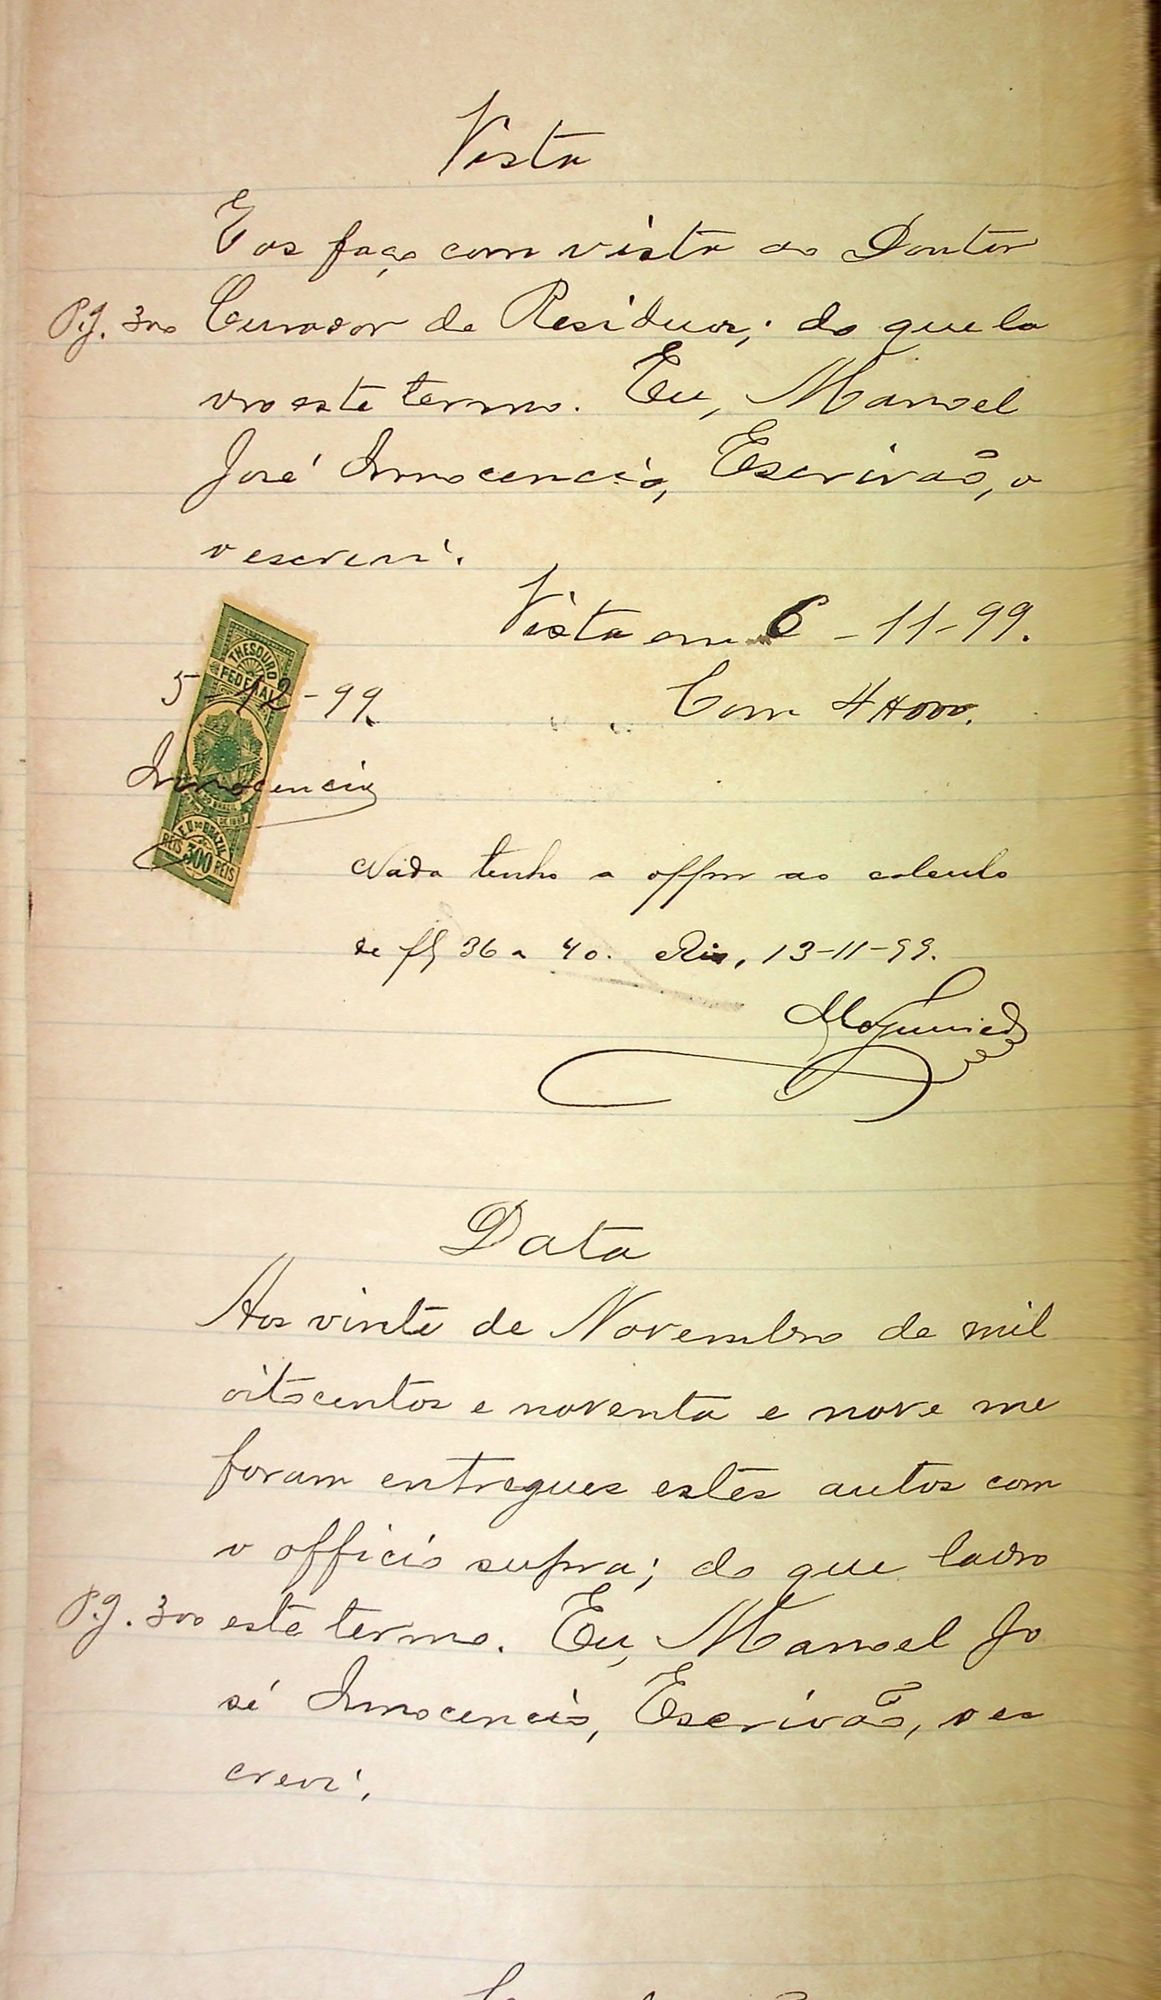 Vista
E os faço com vista ao Doutor
Pg. 300 Curador de Residuos; do que la
vro este termo. Eu, Manoel
José Innocencio, Escrivão, o
o escrevi.
Vista em 6 - 11 - 99.
THESOURO
FEDERAL
5 - 12 - 99.
Com 4#000.
Innocencio
E. U. DO BRAZIL
REIS 300 REIS
Nada tenho a oppor ao calculo
de fls 36 a 40. Rio, 13-11-99.
Data
Aos vinte de Novembro de mil
oitocentos e noventa e nove me
foram entregues estes autos com
o officio supra; do que lavro
Pg. 300 este termo. Eu, Manoel Jo
sé Innocencio, Escrivão, o es
crevi.